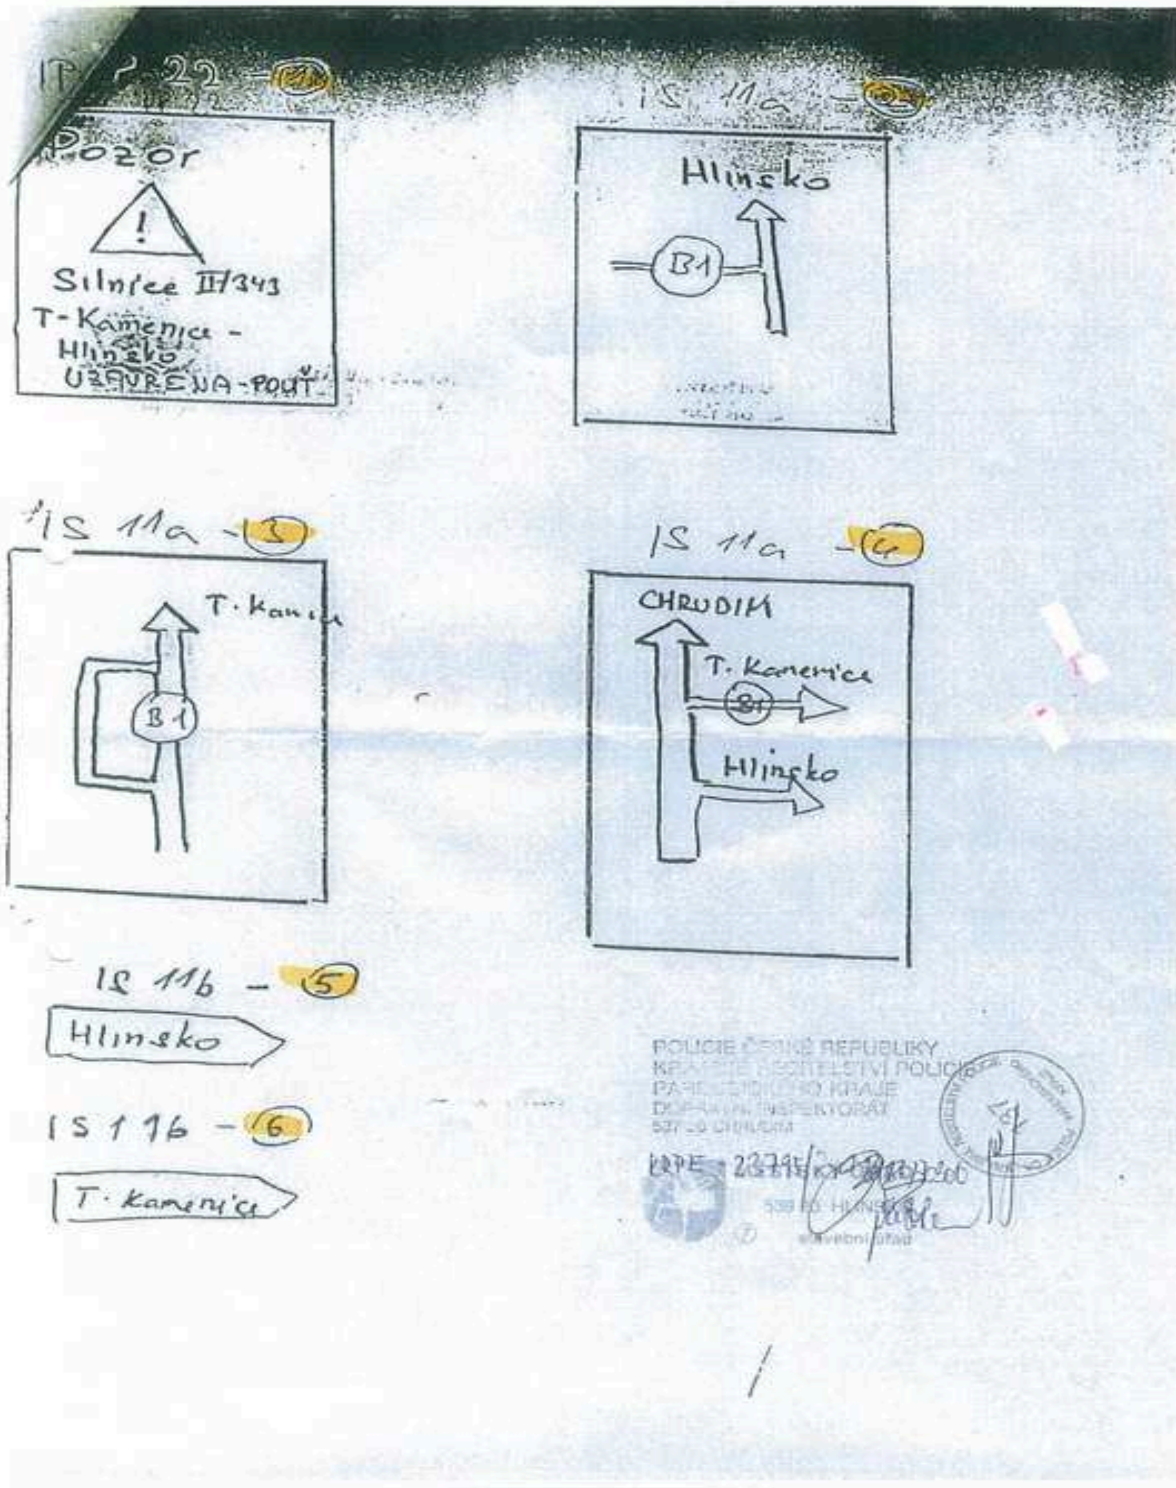 22 -
Pozor
!
Silnice II/343
T-Kamenice -
Hlinsko
UZAVŘENA-POUŤ
IS 11a -
Hlinsko
B1
IS 11a - 3
T. Kamenice
B1
IS 11a - 4
CHRUDIM
T. Kamenice
B1
Hlinsko
IS 11b - 5
Hlinsko
IS 11b - 6
T. Kamenice
POLICIE ČESKÉ REPUBLIKY
KRAJSKÉ ŘEDITELSTVÍ POLICIE
PARDUBICKÉHO KRAJE
DOPRAVNÍ INSPEKTORÁT
CHRUDIM
HLINSKO
stavební úřad